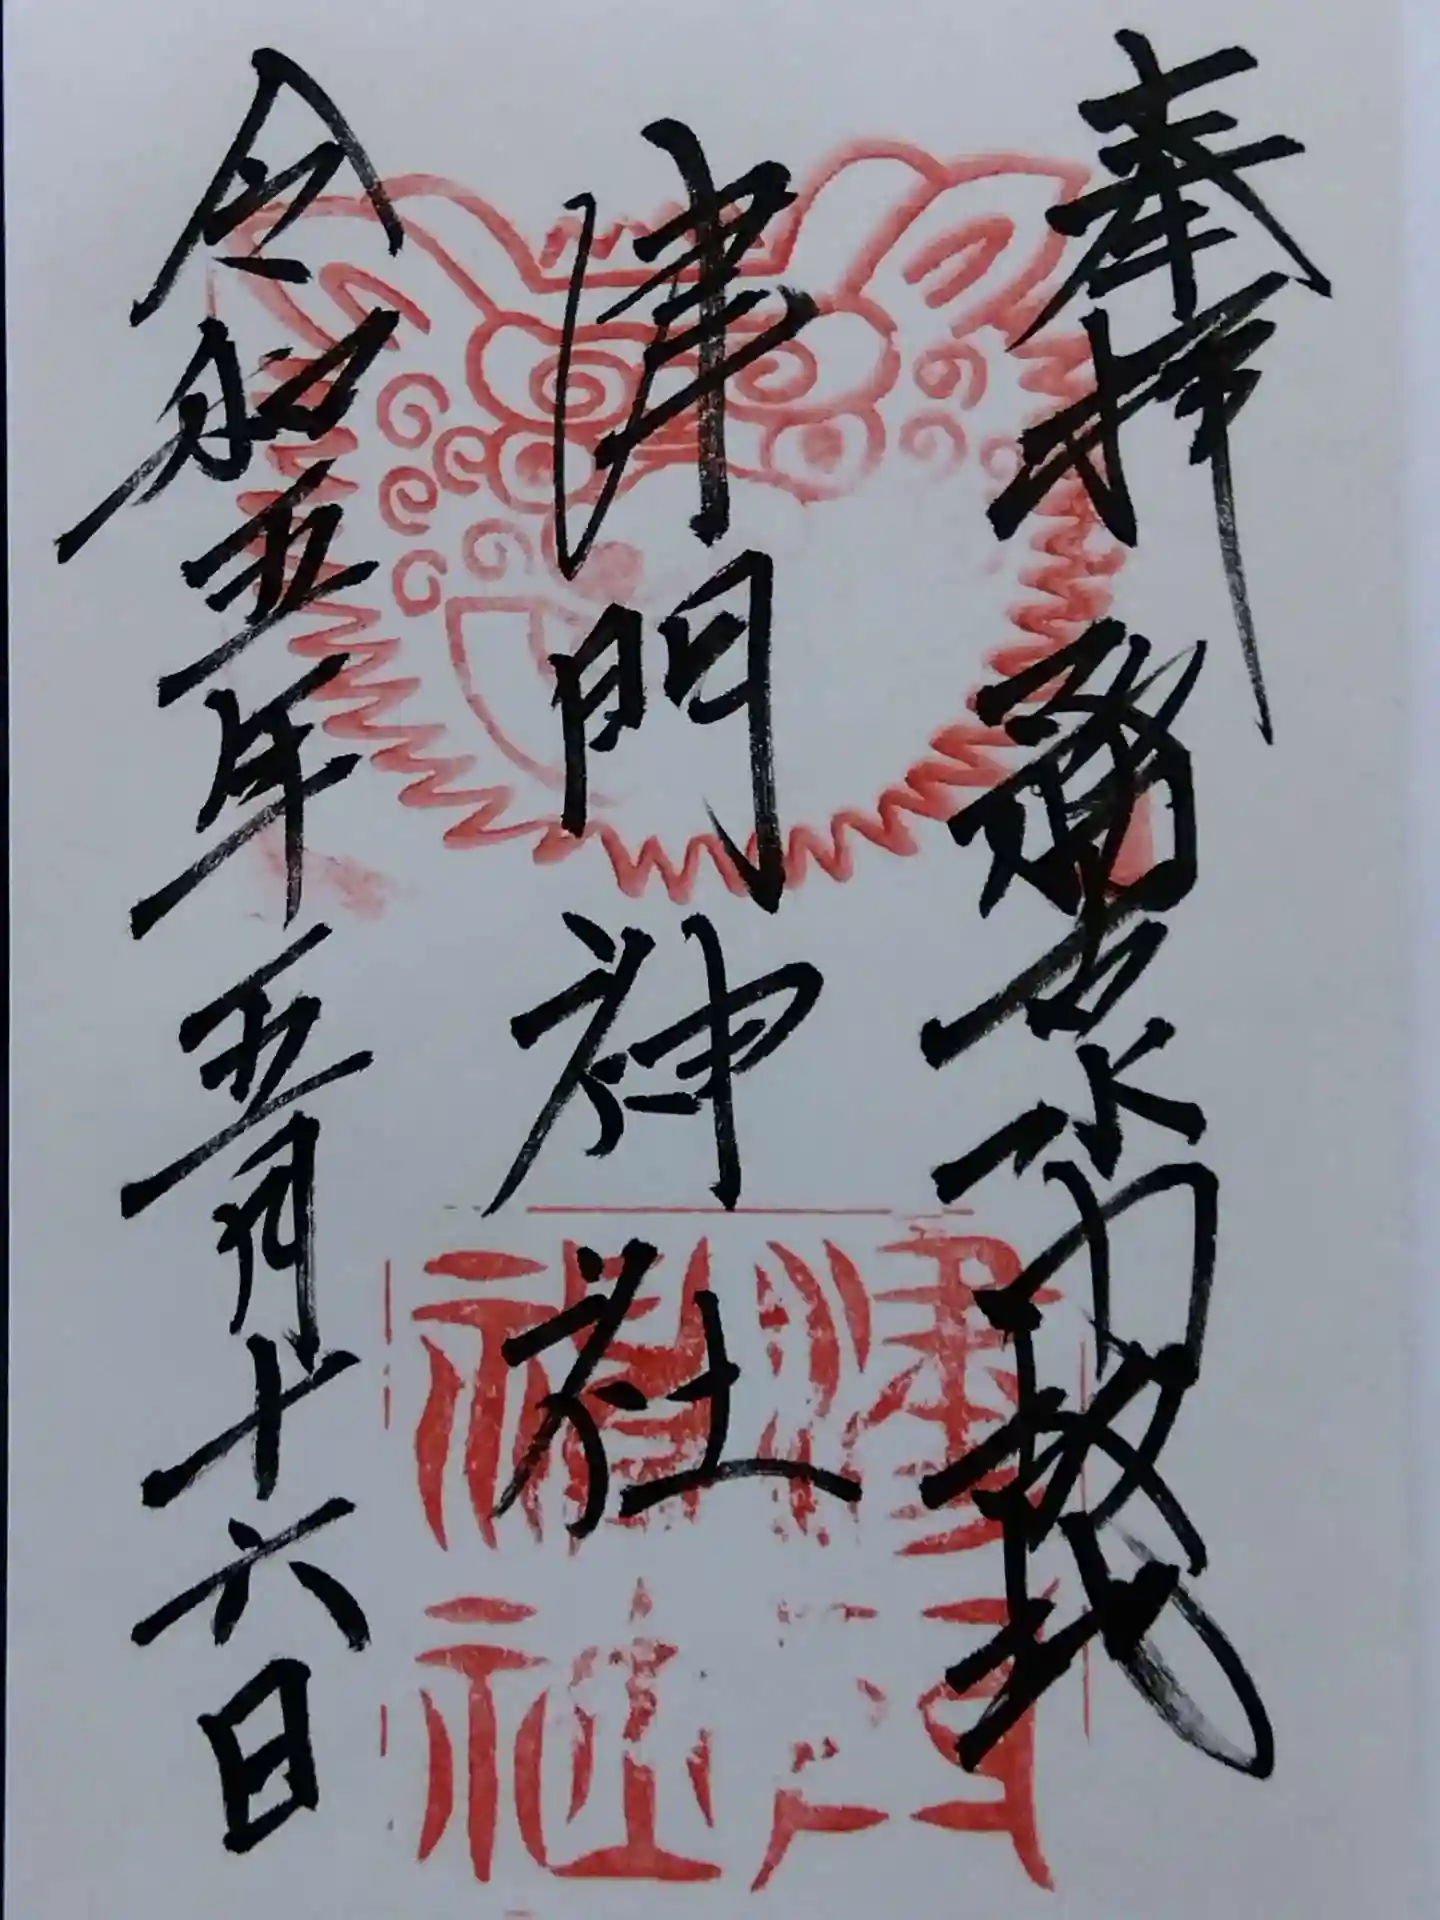 奉拝
津門神社
令和五年五月十六日
津門
神社